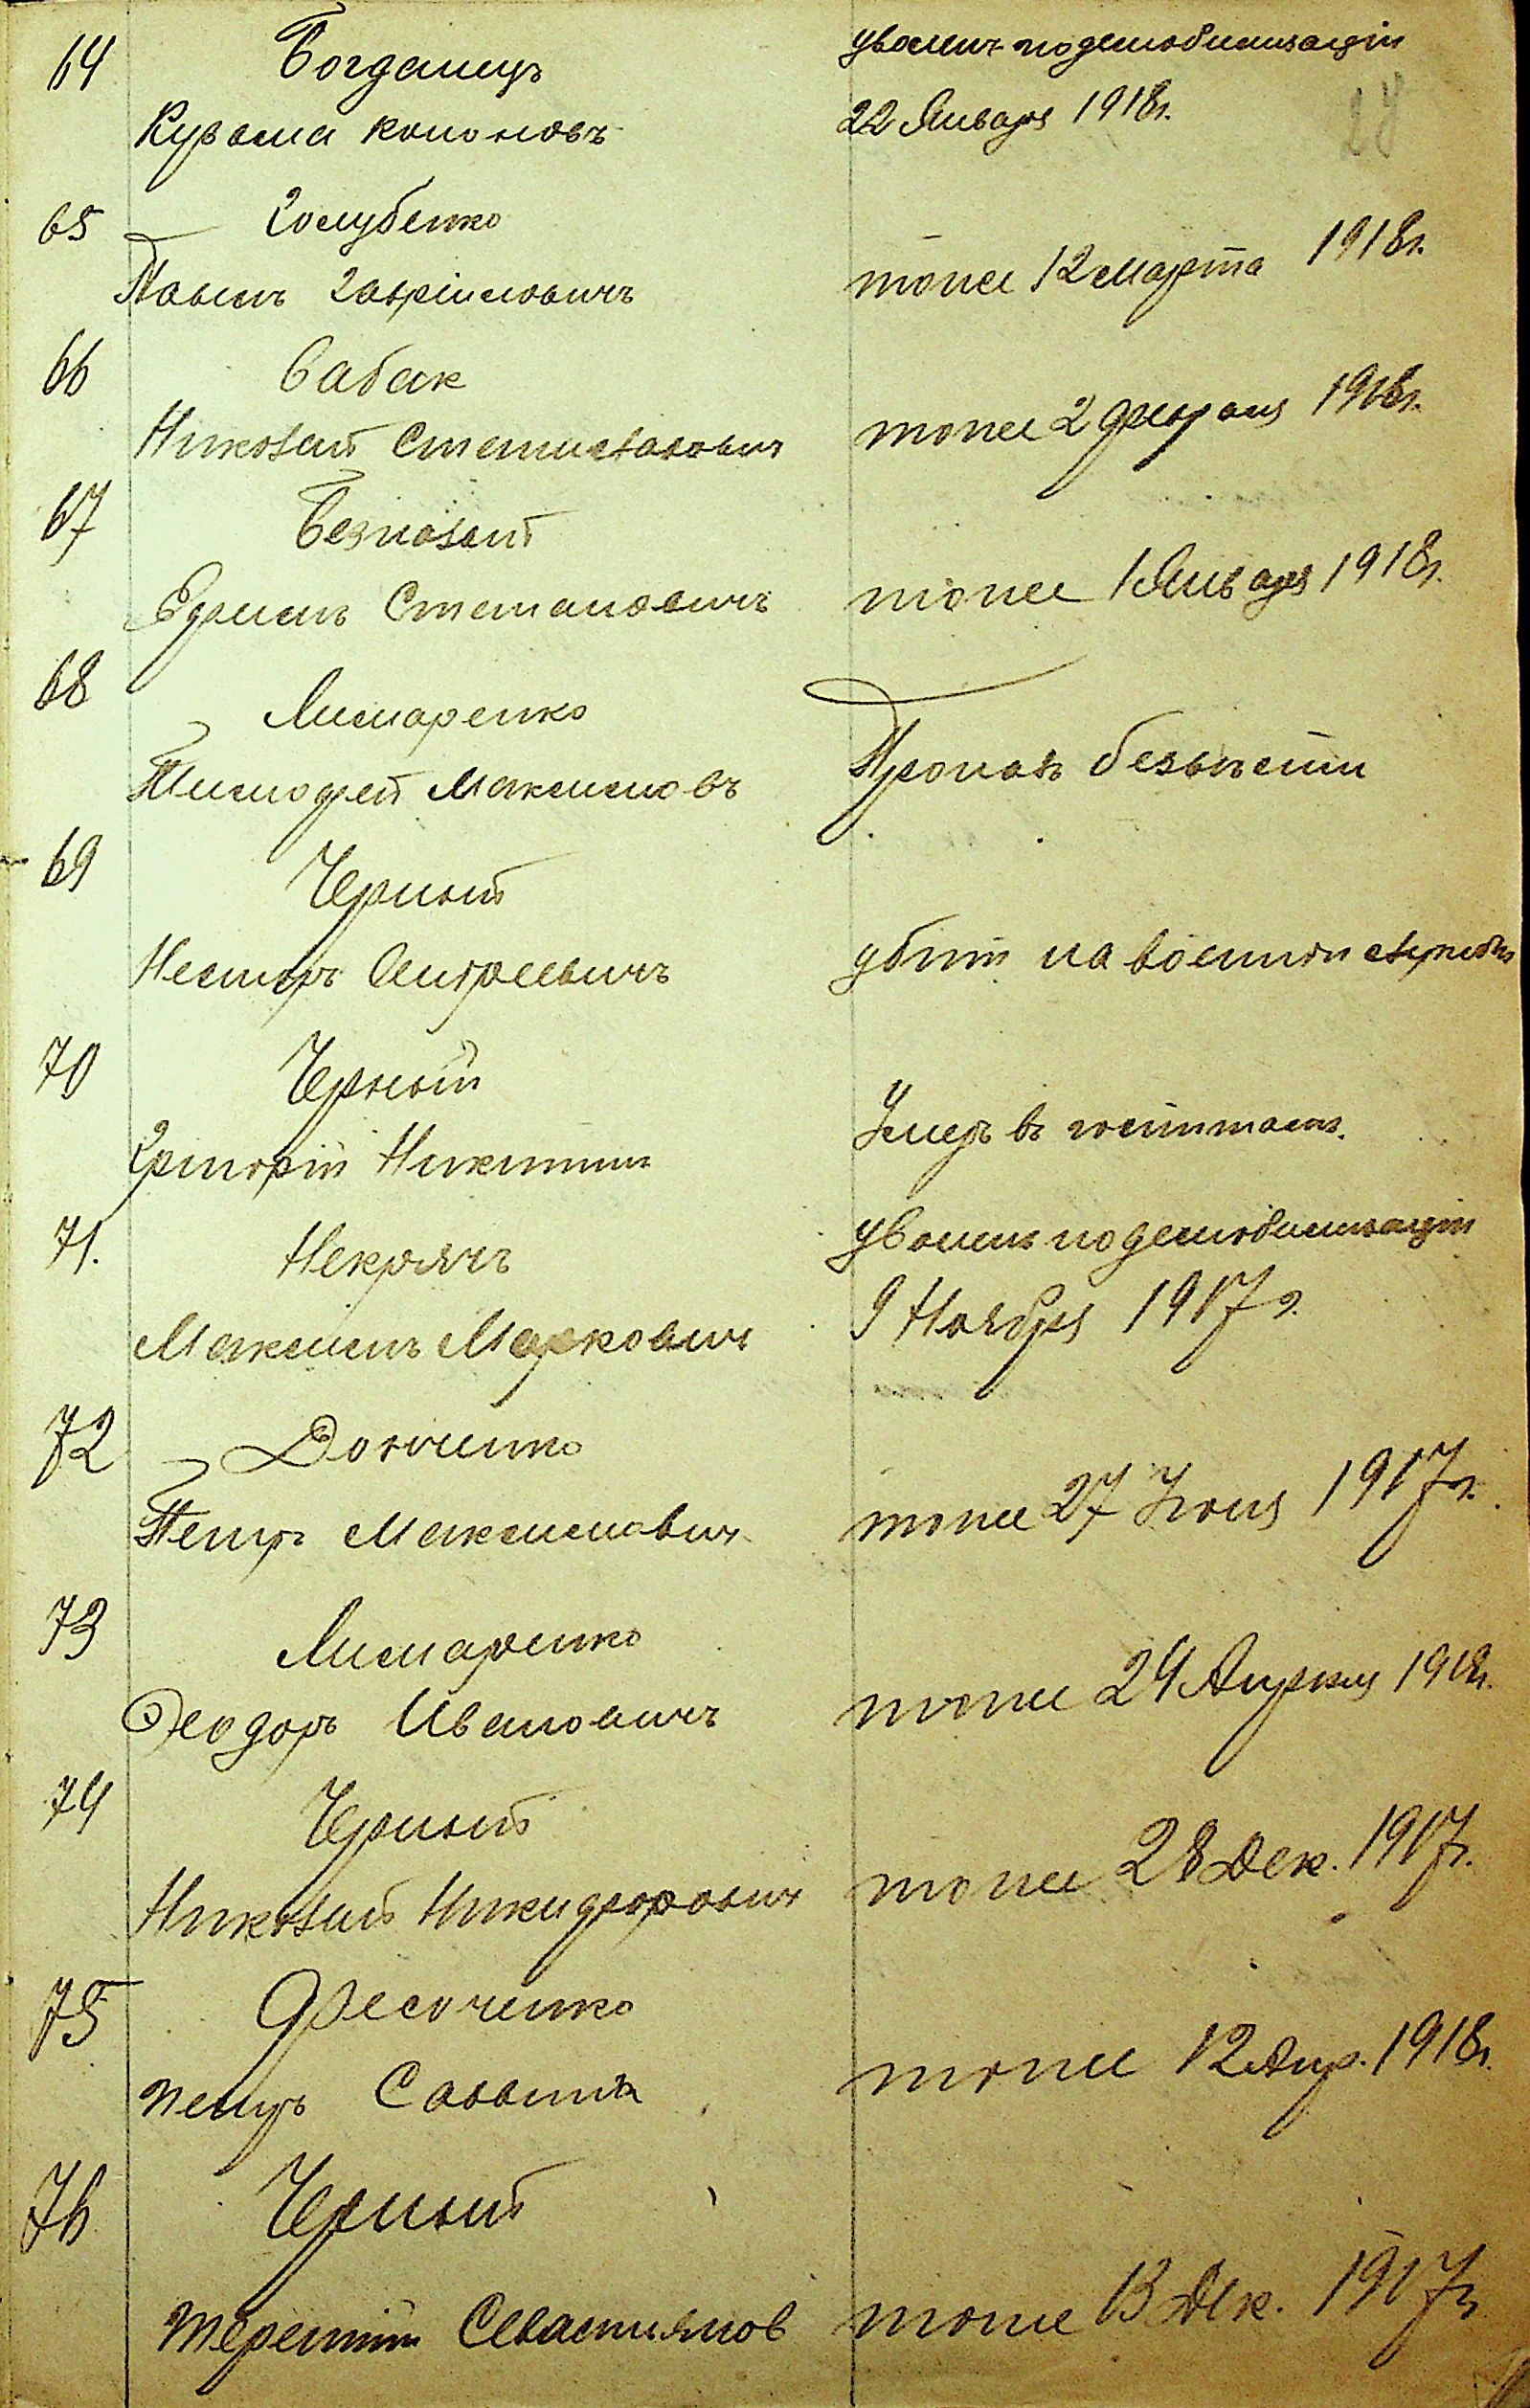 64 Богданецъ уволенъ по демобилизаціи
Кузьма Кононовъ 22 Января 1918г. 28
65 Голубенко
Павелъ Гавріиловичъ тоже 12 марта 1918г.
66 Сабак
Николай Станиславович тоже 2 февраля 1918г.
67 Безносый
Ефимъ Степановичъ тоже 1 Января 1918г.
68 Лимаренко
Тимофей Максимовъ Пропавъ безъвести
69 Черный
Несторъ Андреевичъ убит на военной службѣ
70 Черный
Григорій Никитинъ Умеръ въ
71. Некрячъ уволенъ по демобилизаціи
Максимъ Маркович 9 Ноября 1917г.
72 Донченко
Петръ Максимович тоже 27 Іюня 1917г.
73 Лимаренко
Феодоръ Ивановичъ тоже 24 Апрѣля 1918г.
74 Черный
Николай Никифорович тоже 28 Дек. 1917г.
75 Фесоченко
Петръ Саввинъ тоже 12 Апр. 1918г.
76 Черный
Терентий Севастьянов тоже 13 Дек. 1917г